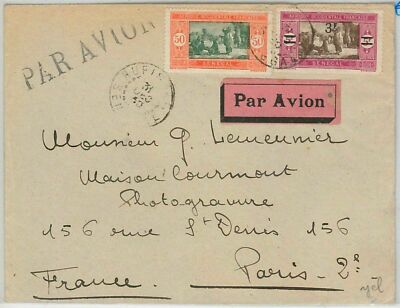 PAR AVION
AFRIQUE OCCIDENTALE FRANÇAISE
50 50
SÉNÉGAL
AFRIQUE OCCIDENTALE FRANÇAISE
3F
SÉNÉGAL
RUFISQUE
31
DEC
Par Avion
Monsieur G. Lemeunier
Maison Courmont
Photogravure
156 rue St Denis 156
Paris-2e
France